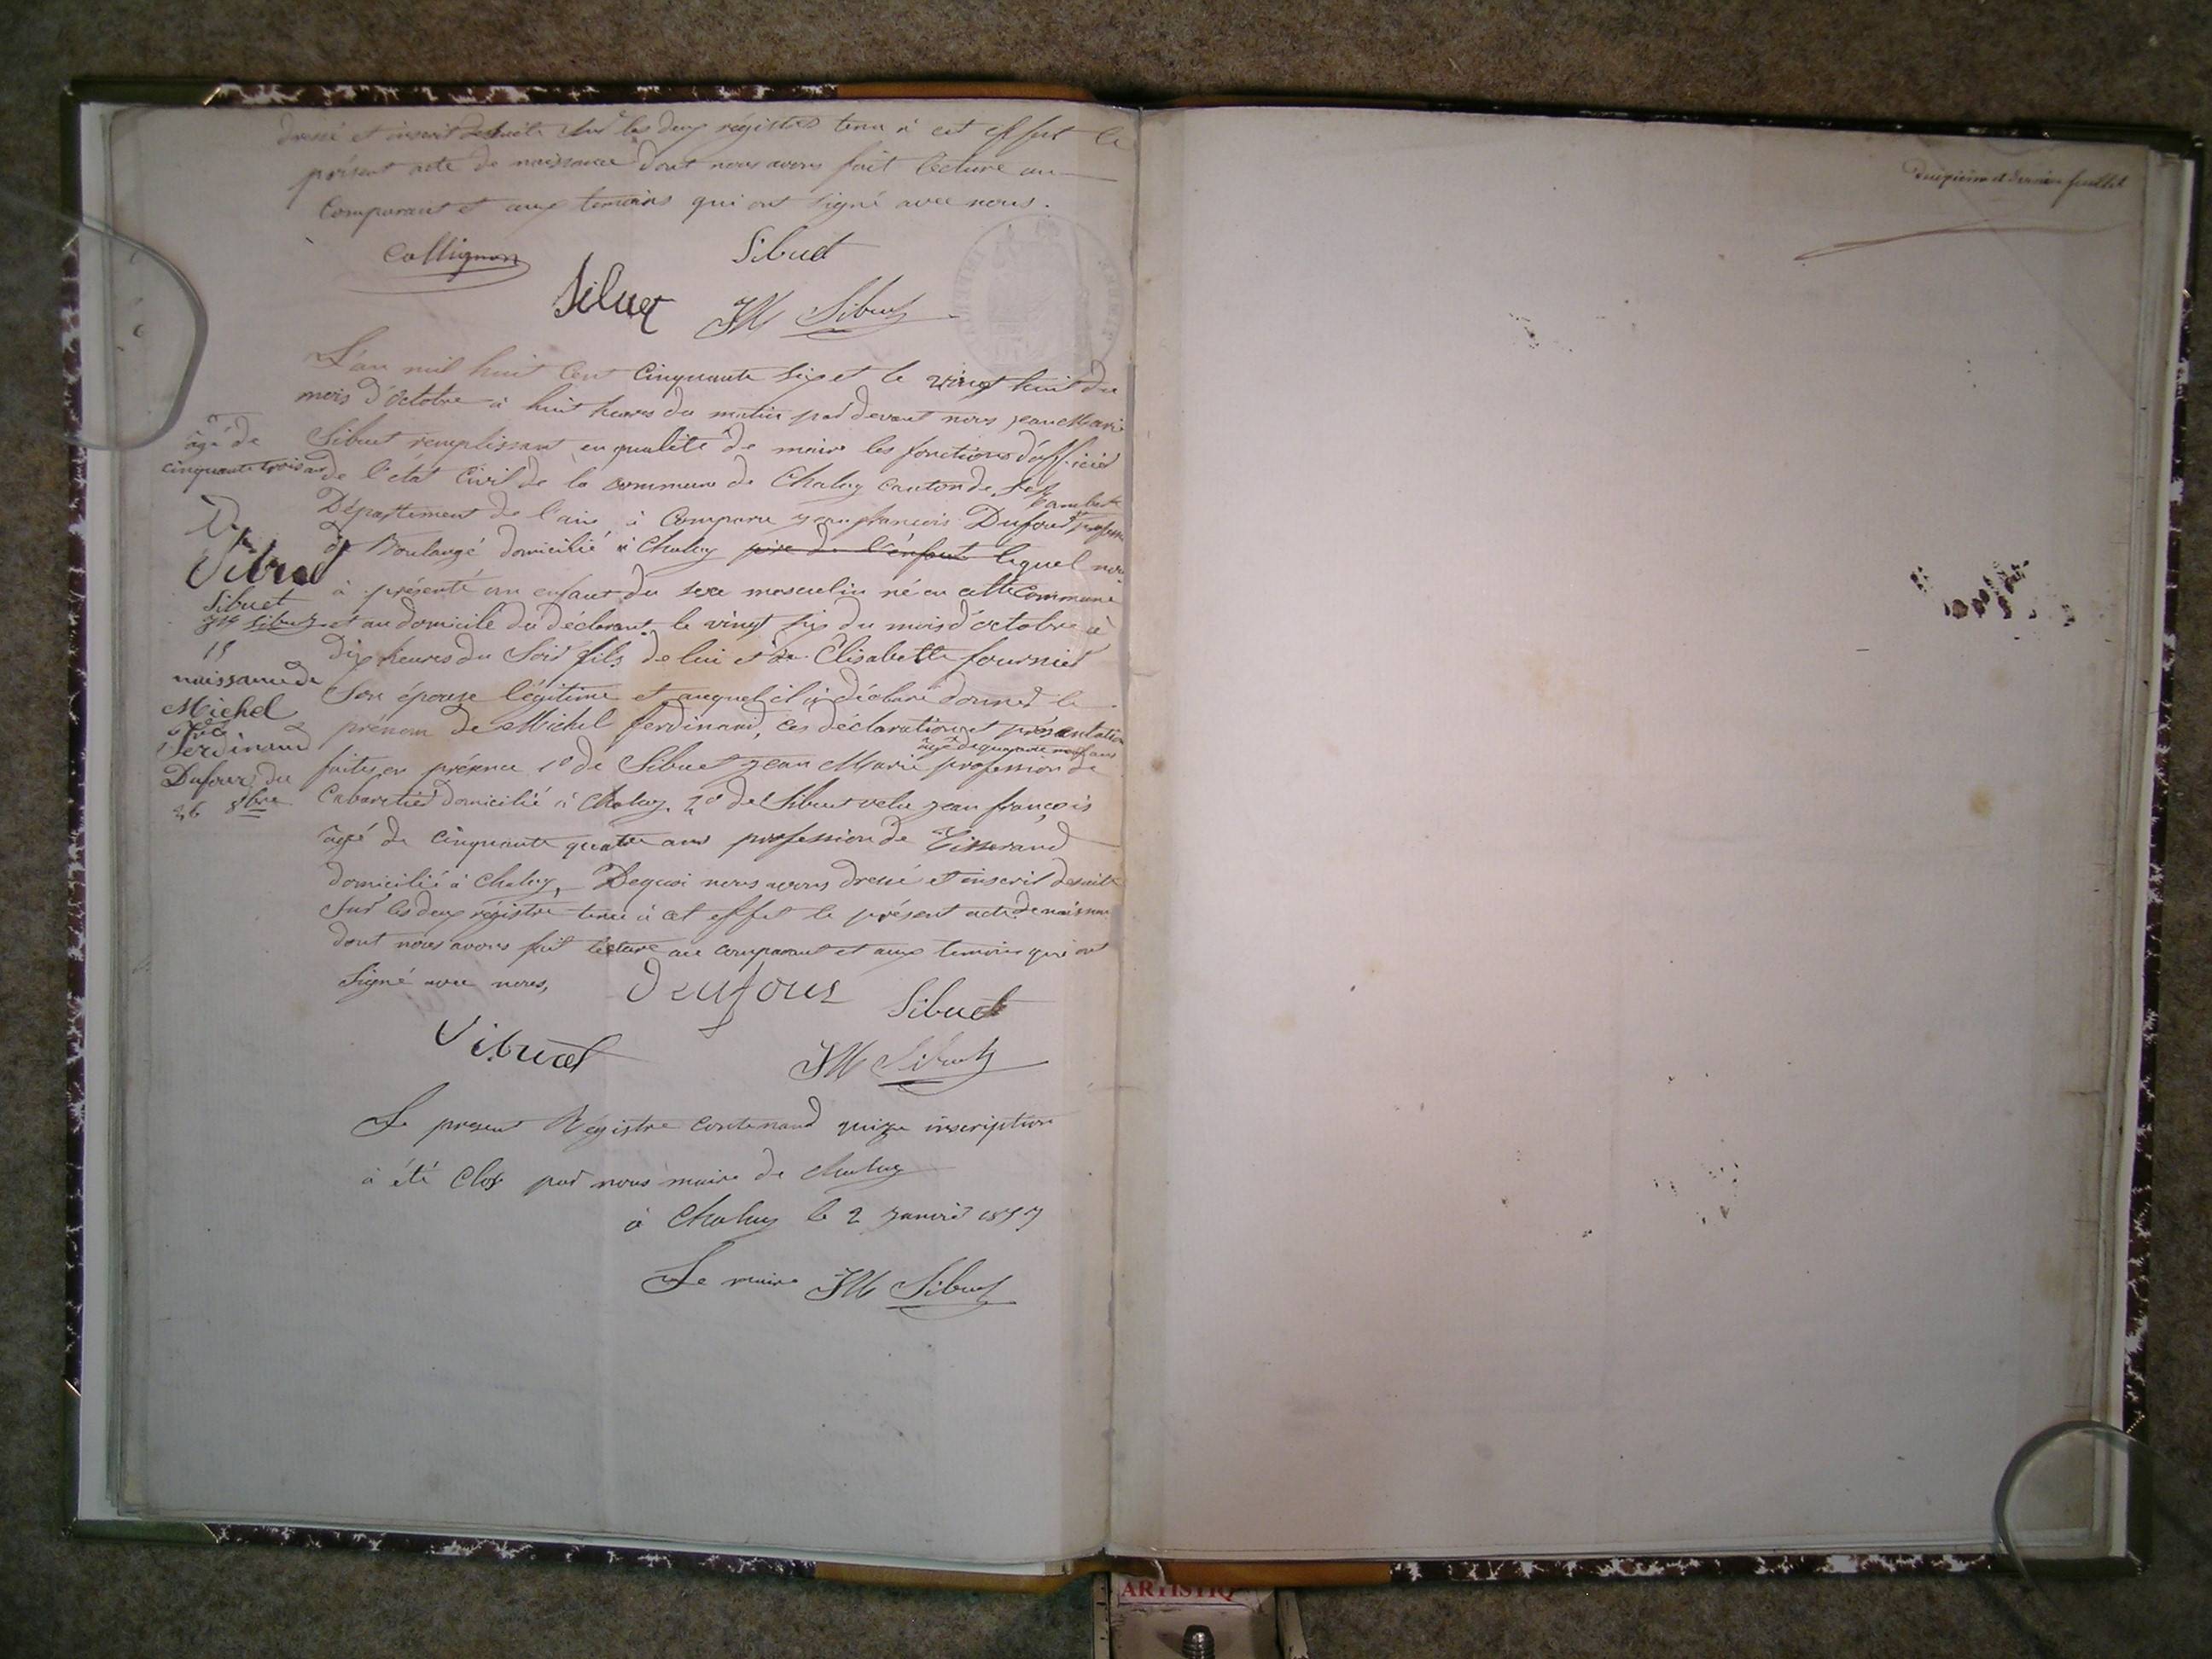 dressé et inscrit desuite sur les deux régistres tenu à cet effet le
présent acte de naissance dont nous avons fait lecture au
Comparant et aux temoins qui ont signé avec nous.
Collignon
Sibuet
Sibuet
JM Sibuet
L'an mil huit Cent Cinquante six et le vingt huit du
mois d'octobre à huit heures du matin par devant nous jean Marie
Sibuet remplissant en qualité de maire les fonctions d'officier
de l'etat Civil de la commune de Chaley Canton de St
Rambert
Département de l'ain, à Comparu jean françois Dufour profession
de Boulangé domicilié à Chaley père de l'énfant lequel nous
à présenté un enfant du sexe masculin né en cette Commune
et au domicile du déclarant le vingt six du mois d'octobre à
dix heures du Soir fils de lui et de Elisabette fournier
Son épouse légitime et auquel il à déclaré donner le
prénom de Michel ferdinand, ces déclaration et présentation
agé de quarante neuf ans
faites en présence 1º de Sibuet jean Marie profession de
Cabaretier domicilié à Chaley. 2º de Sibuet jean françois
agé de cinquante quatre ans profession de Tisserand
domicilié à Chaley, Dequoi nous avons dressé et inscrit desuite
Sur les deux régistre tenu à cet effet le présent acte de naissance
dont nous avons fait lecture au comparant et aux temoins qui ont
Signé avec nous,
Dufour
Sibuet
Sibuet
JM Sibuet
Le present Régistre contenand quinze inscription
à été Clos par nous maire de Chaley
à Chaley le 2 janvier 1857
Le maire JM Sibuet
agé de
cinquante trois ans
Sibuet
JM Sibuet
15
naissance de
Michel
ferdinand
Dufour du
26 8bre
Deuxième et dernier feuillet
ARTISTIQ